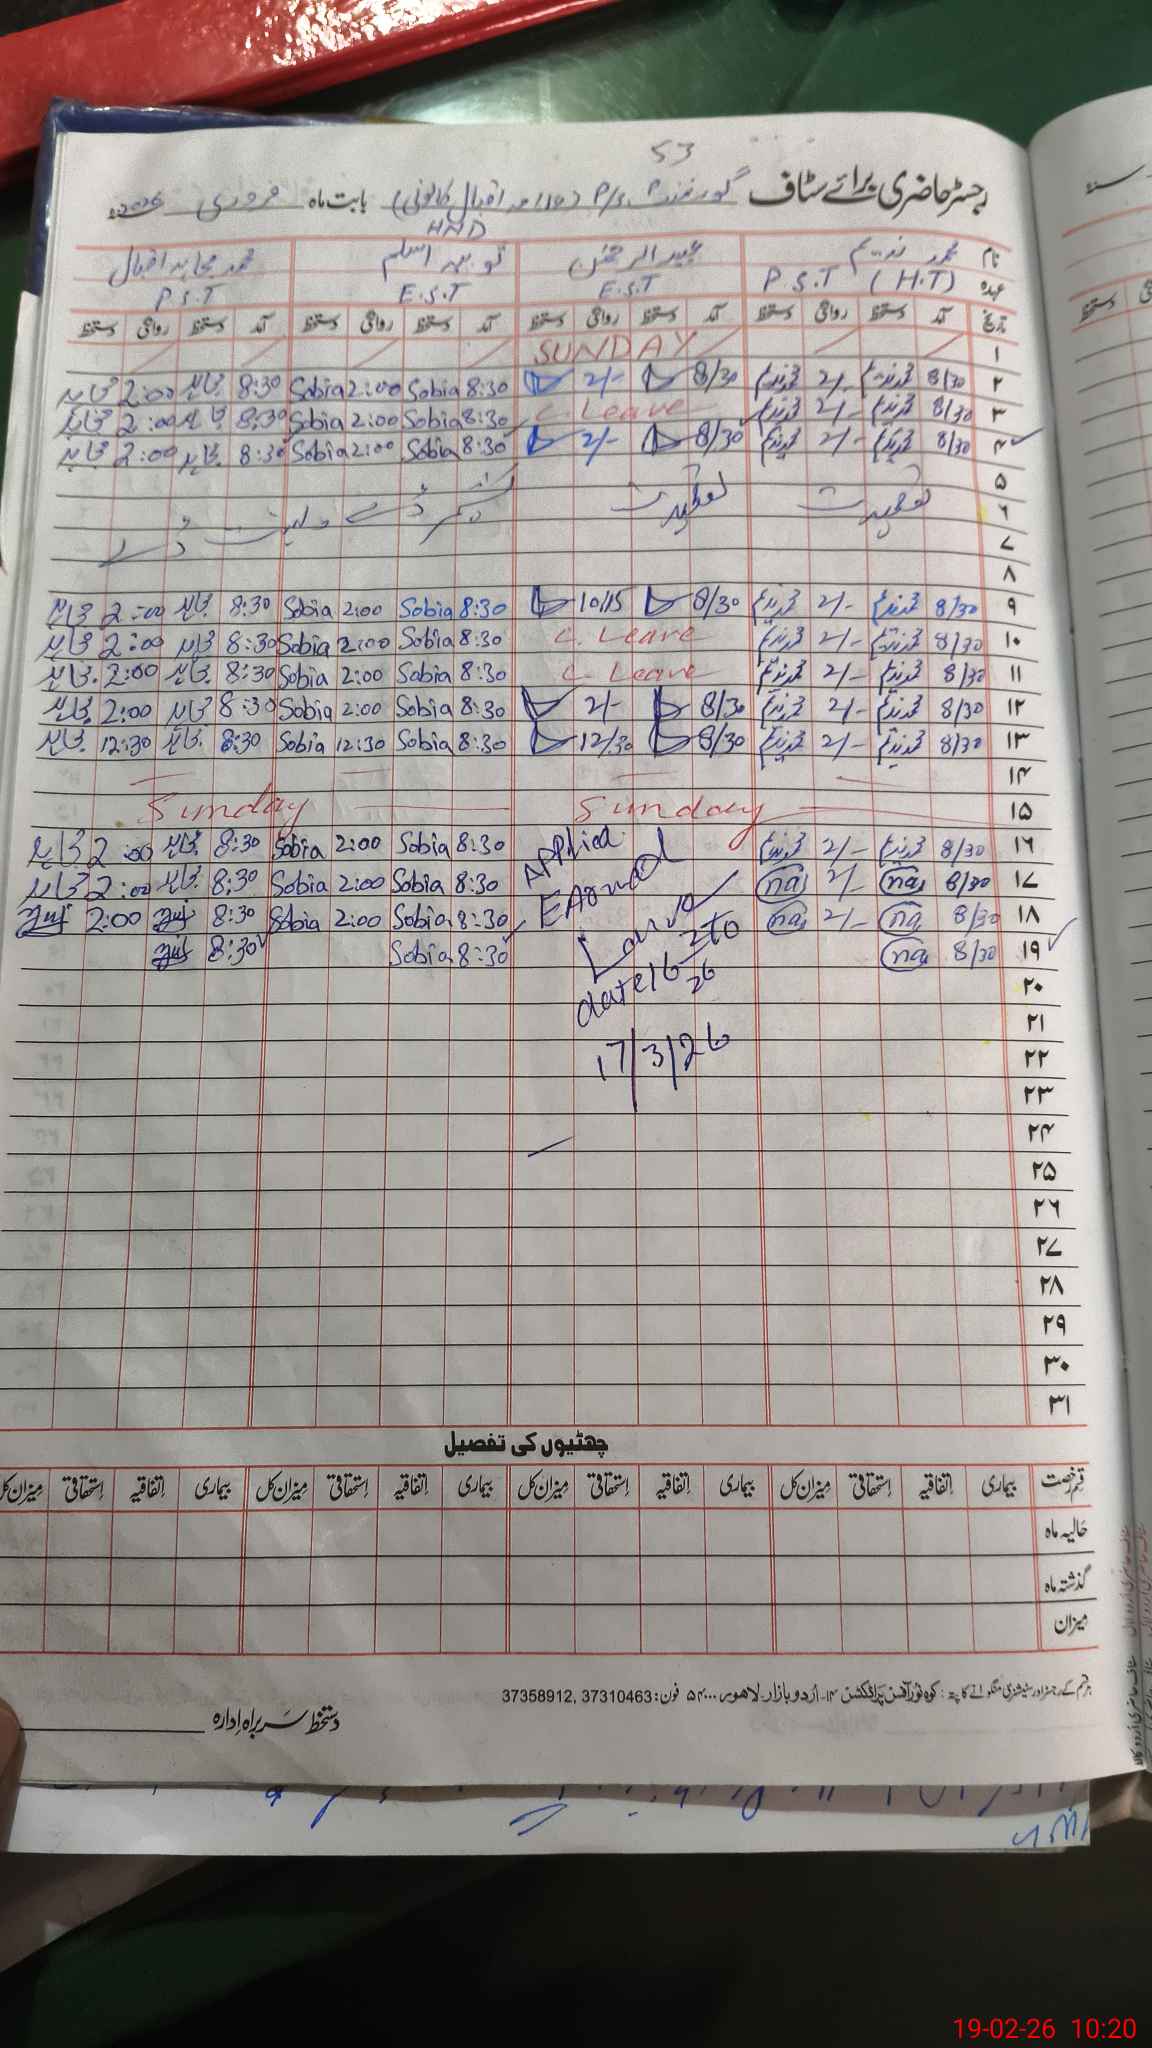 53
رجسٹر حاضری برائے سٹاف گورنمنٹ P/S (علامہ اقبال کالونی) بابت ماہ فروری 2026ء
HND
نام محمد ندیم عبید الرحمٰن ثوبیہ اسلم محمد مجاہد اقبال
عہدہ P.S.T (H.T) E.S.T E.S.T P.S.T
تاریخ آمد دستخط روانگی دستخط آمد دستخط روانگی دستخط آمد دستخط روانگی دستخط آمد دستخط روانگی دستخط
۱ SUNDAY
۲ 8/30 محمد ندیم 2/- محمد ندیم 8/30 2/- 8:30 Sobia 2:00 Sobia 8:30 مجاہد 2:00 مجاہد
۳ 8/30 محمد ندیم 2/- محمد ندیم C. Leave 8:30 Sobia 2:00 Sobia 8:30 مجاہد 2:00 مجاہد
۴ 8/30 محمد ندیم 2/- محمد ندیم 8/30 2/- 8:30 Sobia 2:00 Sobia 8:30 مجاہد 2:00 مجاہد
۵
۶ تعطیلات تعطیلات
۷
۸
۹ 8/30 محمد ندیم 2/- محمد ندیم 8/30 10/15 8:30 Sobia 2:00 Sobia 8:30 مجاہد 2:00 مجاہد
۱۰ 8/30 محمد ندیم 2/- محمد ندیم C. Leave 8:30 Sobia 2:00 Sobia 8:30 مجاہد 2:00 مجاہد
۱۱ 8/30 محمد ندیم 2/- محمد ندیم C. Leave 8:30 Sobia 2:00 Sobia 8:30 مجاہد 2:00 مجاہد
۱۲ 8/30 محمد ندیم 2/- محمد ندیم 8/30 2/- 8:30 Sobia 2:00 Sobia 8:30 مجاہد 2:00 مجاہد
۱۳ 8/30 محمد ندیم 2/- محمد ندیم 8/30 12/30 8:30 Sobia 12:30 Sobia 8:30 مجاہد 12:30 مجاہد
۱۴
۱۵ Sunday Sunday
۱۶ 8/30 محمد ندیم 2/- محمد ندیم 8:30 Sobia 2:00 Sobia 8:30 مجاہد 2:00 مجاہد
۱۷ 8/30 na 2/- na 8:30 Sobia 2:00 Sobia 8:30 مجاہد 2:00 مجاہد
۱۸ 8/30 na 2/- na 8:30 Sobia 2:00 Sobia 8:30 2:00
۱۹ 8/30 na 8:30 Sobia 8:30
Applied
date 16 2 to
26
17/3/26
۲۰
۲۱
۲۲
۲۳
۲۴
۲۵
۲۶
۲۷
۲۸
۲۹
۳۰
۳۱
چھٹیوں کی تفصیل
قسم رخصت بیماری اتفاقیہ استحقاقی میزان کل بیماری اتفاقیہ استحقاقی میزان کل بیماری اتفاقیہ استحقاقی میزان کل بیماری اتفاقیہ استحقاقی میزان کل
حالیہ ماہ
گذشتہ ماہ
میزان
ہر قسم کے رجسٹر اور سٹیشنری منگوانے کا پتہ: کوہ نور آفسٹ پراڈکشن ۱۴۔ اُردو بازار۔ لاہور ۵۴۰۰۰ فون: 37310463, 37358912
دستخط سربراہ ادارہ
19-02-26 10:20